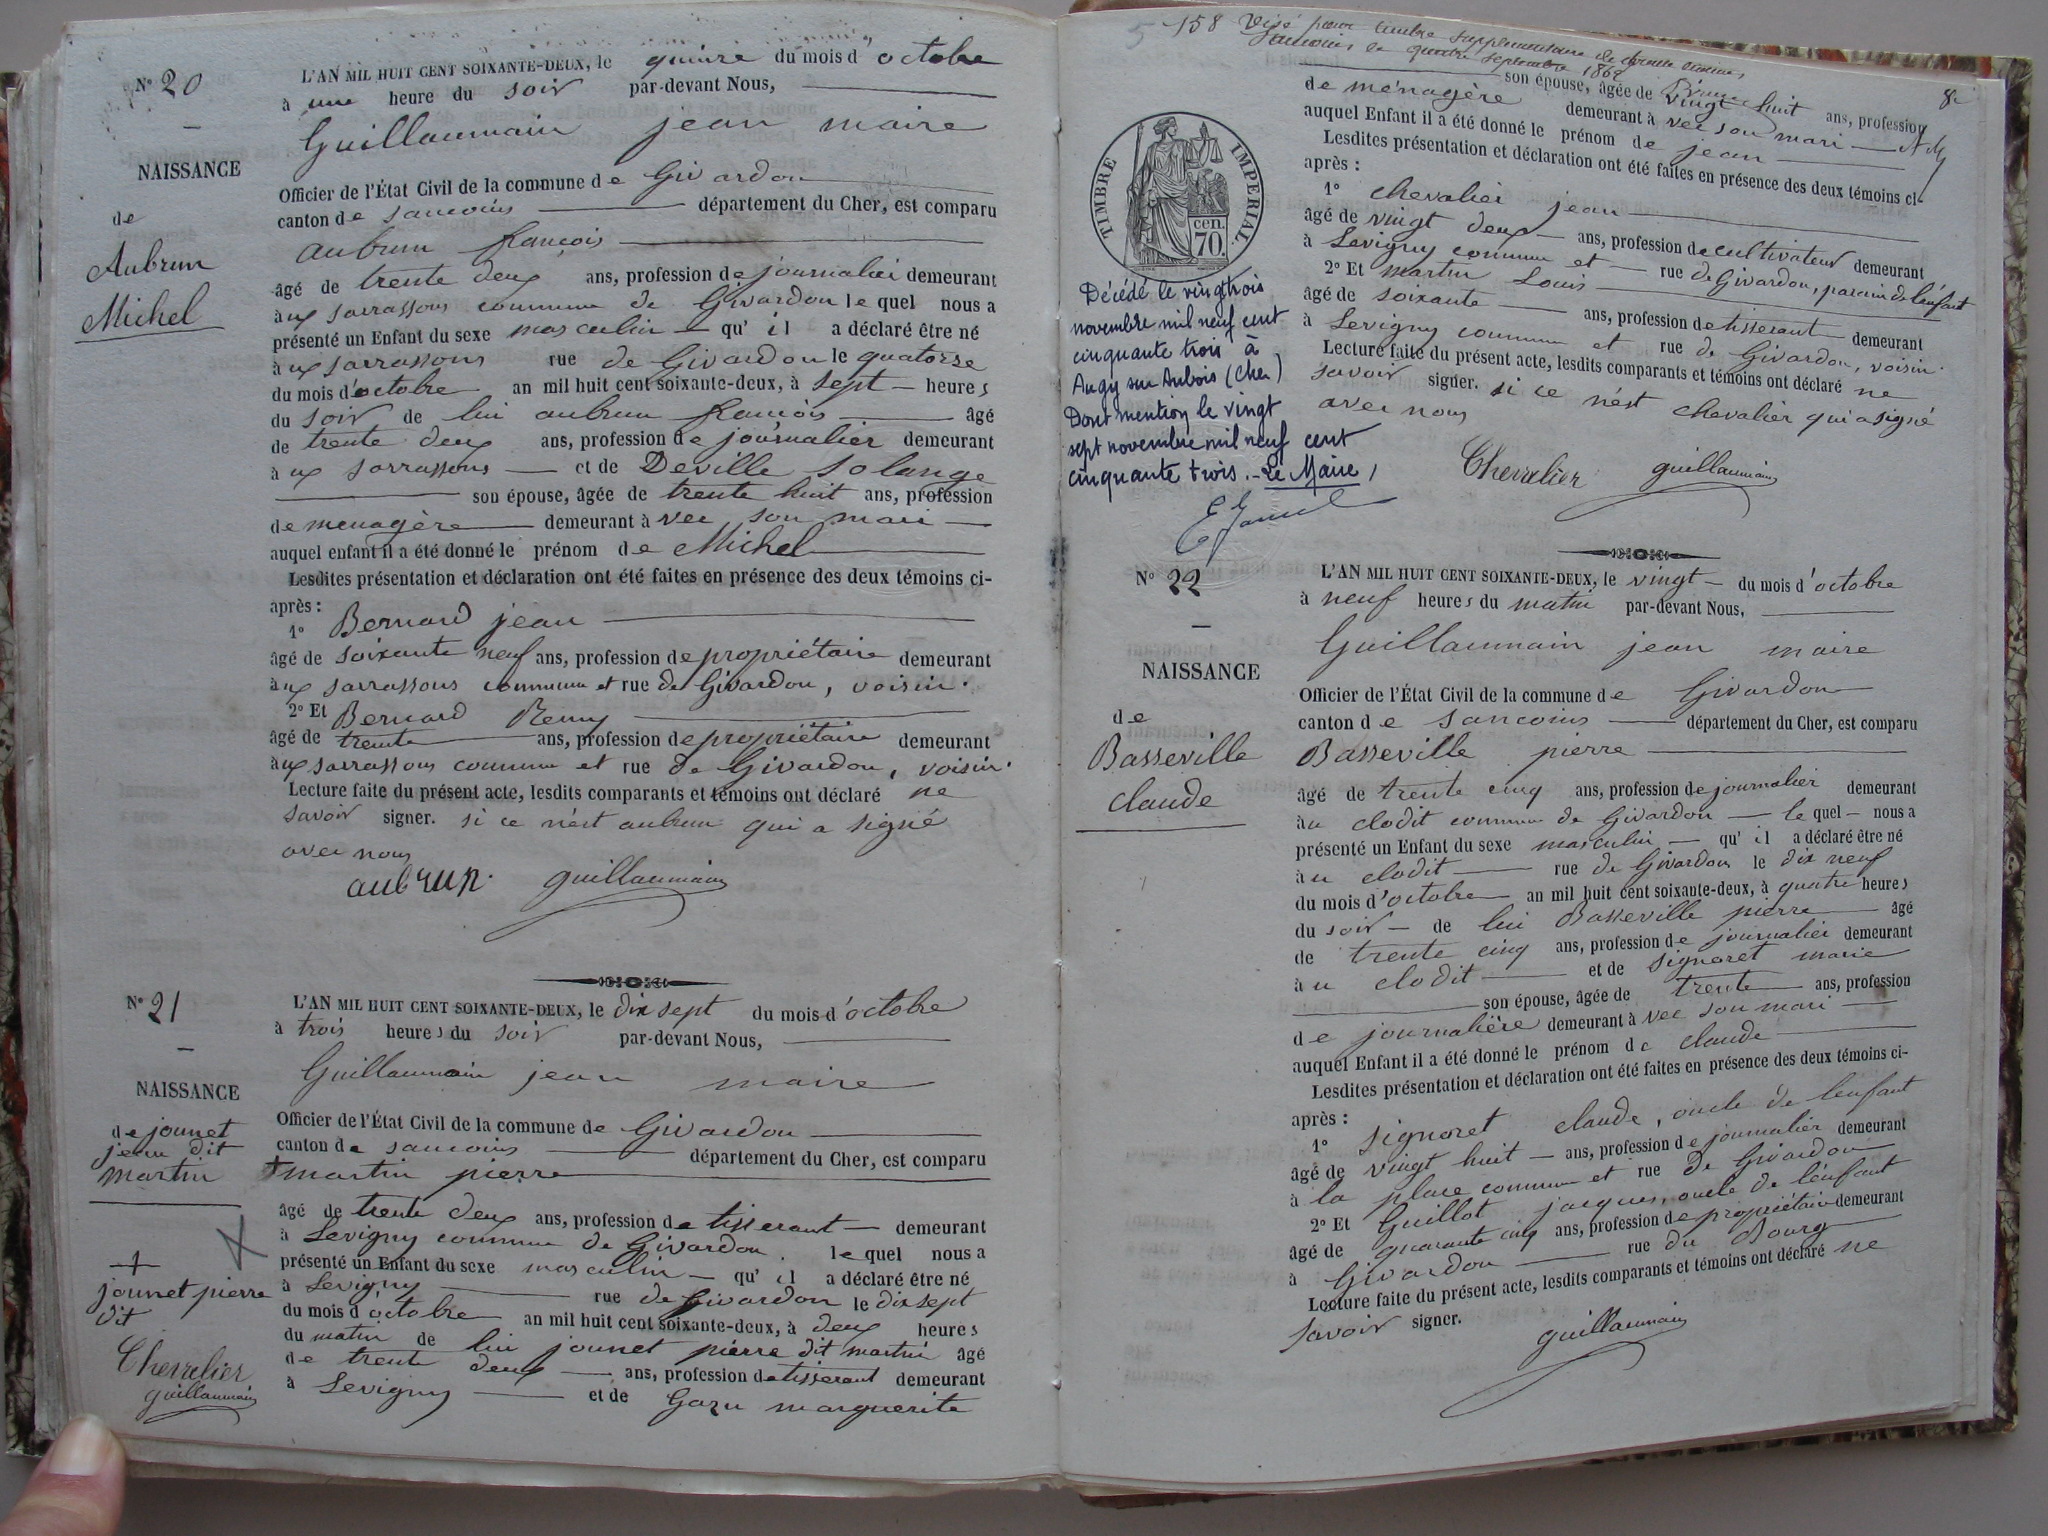 N° 20
NAISSANCE
de
Aubrun
Michel
L'AN MIL HUIT CENT SOIXANTE-DEUX, le quinze du mois d'octobre
à une heure du soir par-devant Nous,
Guillaumain jean maire
Officier de l'État Civil de la commune de Givardon
canton de sancoins département du Cher, est comparu
aubrun françois
âgé de trente deux ans, profession de journalier demeurant
aux sarrassons commune de Givardon lequel nous a
présenté un Enfant du sexe masculin qu'il a déclaré être né
aux sarrassons rue de Givardon le quatorse
du mois d'octobre an mil huit cent soixante-deux, à sept heures
du soir de lui aubrun françois âgé
de trente deux ans, profession de journalier demeurant
aux sarrassons et de Deville solange
son épouse, âgée de trente huit ans, profession
de menagère demeurant àvec son mari
auquel enfant il a été donné le prénom de Michel
Lesdites présentation et déclaration ont été faites en présence des deux témoins ci-
après :
1° Bernard jean
âgé de soixante neuf ans, profession de propriétaire demeurant
aux sarrassons commune et rue de Givardon, voisin.
2° Et Bernard Remy
âgé de trente ans, profession de propriétaire demeurant
aux sarrassons commune et rue de Givardon, voisin.
Lecture faite du présent acte, lesdits comparants et témoins ont déclaré ne
savoir signer. si ce n'est aubrun qui a signé
avec nous
aubrun. guillaumain
N° 21
NAISSANCE
de jounet
jean dit
martin
+
jounet pierre
dit
Chevalier
guillaumain
L'AN MIL HUIT CENT SOIXANTE-DEUX, le dix sept du mois d'octobre
à trois heures du soir par-devant Nous,
Guillaumain jean maire
Officier de l'État Civil de la commune de Givardon
canton de sancoins département du Cher, est comparu
+ martin pierre
âgé de trente deux ans, profession de tisserant demeurant
à Levigny commune de Givardon. lequel nous a
présenté un Enfant du sexe masculin qu'il a déclaré être né
à Levigny rue de Givardon le dix sept
du mois d'octobre an mil huit cent soixante-deux, à deux heures
du matin de lui jounet pierre dit martin âgé
de trente deux ans, profession de tisserant demeurant
à Levigny et de Gazu marguerite
5 158 Visé pour timbre supplémentaire de trente centimes
Sancoins le quatre septembre 1862
8
TIMBRE IMPERIAL
70 cen.
Décédé le vingt trois
novembre mil neuf cent
cinquante trois à
Augy sur Aubois (Cher)
Dont mention le vingt
sept novembre mil neuf cent
cinquante trois. - Le Maire,
son épouse, âgée de vingt huit ans, profession
de ménagère demeurant àvec son mari
auquel Enfant il a été donné le prénom de jean
Lesdites présentation et déclaration ont été faites en présence des deux témoins ci-
après :
1° chevalier jean
âgé de vingt deux ans, profession de cultivateur demeurant
à Levigny commune et rue de Givardon, parain de l'enfant
2° Et martin Louis
âgé de soixante ans, profession de tisserant demeurant
à Levigny commune et rue de Givardon, voisin.
Lecture faite du présent acte, lesdits comparants et témoins ont déclaré ne
savoir signer. si ce n'est chevalier qui a signé
avec nous
Chevalier guillaumain
N° 22
NAISSANCE
de
Basseville
claude
L'AN MIL HUIT CENT SOIXANTE-DEUX, le vingt du mois d'octobre
à neuf heures du matin par-devant Nous,
Guillaumain jean maire
Officier de l'État Civil de la commune de Givardon
canton de sancoins département du Cher, est comparu
Basseville pierre
âgé de trente cinq ans, profession de journalier demeurant
au clodit commune de Givardon lequel nous a
présenté un Enfant du sexe masculin qu'il a déclaré être né
au clodit rue de Givardon le dix neuf
du mois d'octobre an mil huit cent soixante-deux, à quatre heures
du soir de lui Basseville pierre âgé
de trente cinq ans, profession de journalier demeurant
au clodit et de signoret marie
son épouse, âgée de trente ans, profession
de journalière demeurant àvec son mari
auquel Enfant il a été donné le prénom de claude
Lesdites présentation et déclaration ont été faites en présence des deux témoins ci-
après :
1° signoret claude, oncle de lenfant
âgé de vingt huit ans, profession de journalier demeurant
à la place commune et rue de Givardon
2° Et Guillot jacques, oncle de l'enfant
âgé de quarante cinq ans, profession de propriétaire demeurant
à Givardon rue du Bourg
Lecture faite du présent acte, lesdits comparants et témoins ont déclaré ne
savoir signer.
guillaumain